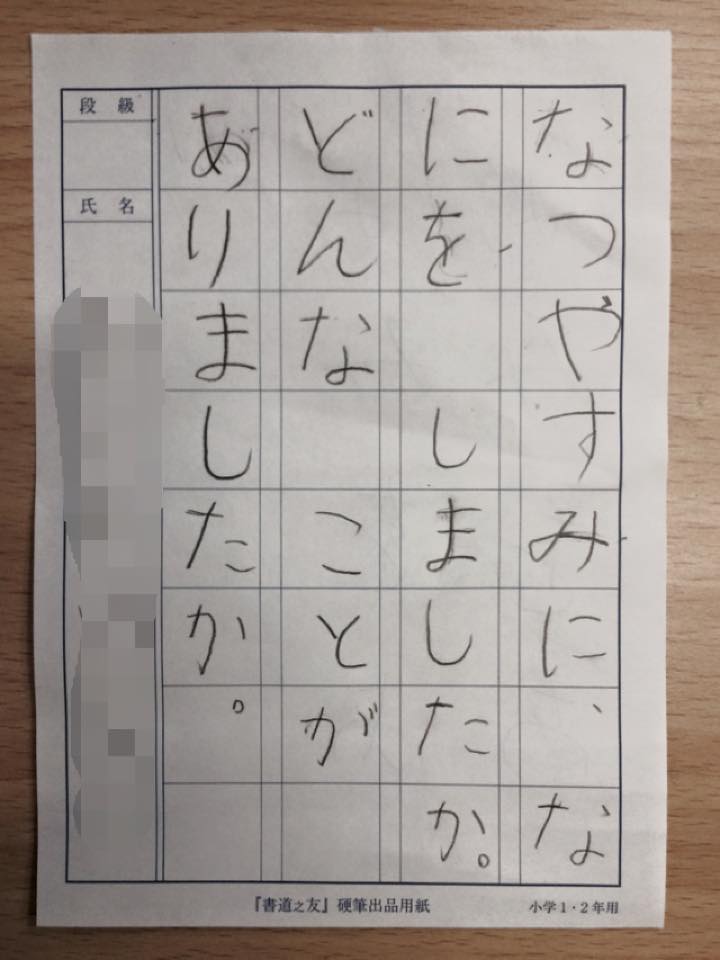 なつやすみに、な
にを　しましたか。
どんな　ことが
ありましたか。
段級
氏名
『書道之友』硬筆出品用紙
小学1・2年用